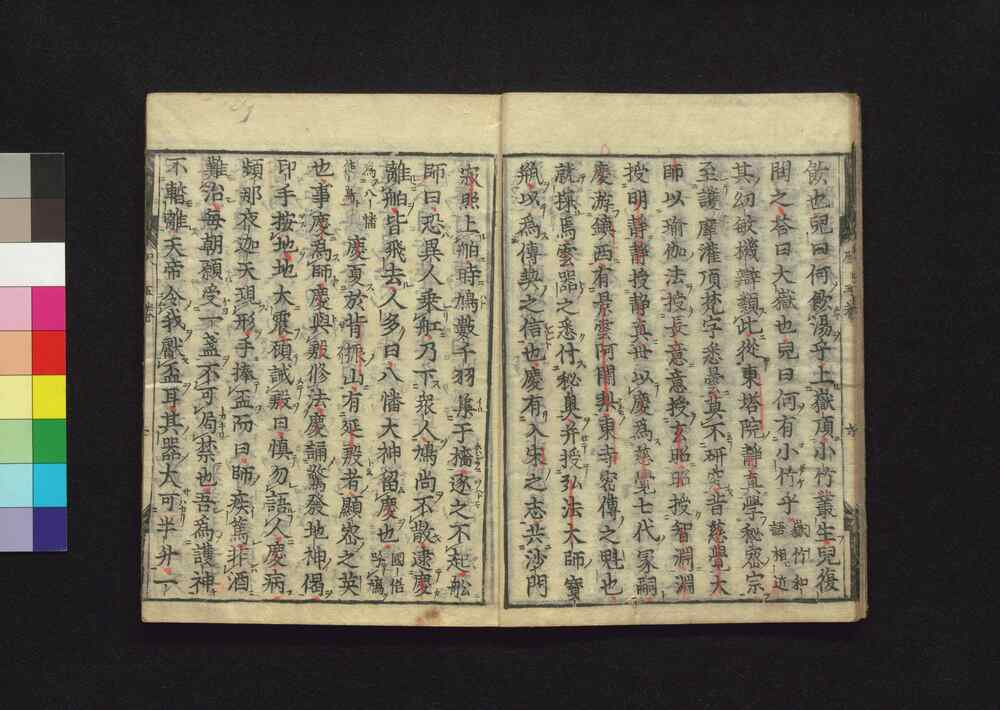 飲也兒曰何飲湯乎上嶽頂小竹叢生兒復
問之答曰大嶽也兒曰何有小竹乎嶽竹和語相近
其幼敏機辯類此從東塔院靜眞學秘密宗
至護摩灌頂梵字悉曇眞不研究昔慈覺大
師以瑜伽法授長意意授玄昭昭授智淵淵
授明靜靜授靜眞世以慶爲慈覺七代冢嗣
慶游鎭西有景雲阿闍梨東寺密傳之魁也
就探焉雲器之悉付秘奥并授弘法大師寶
瓶以爲傳契之信也慶有入宋之志共沙門
寂照上舶時鳩數千羽集于檣逐之不起舩
師曰恐異人乗舡乃下衆人鳩尚不散逮慶
離舶皆飛去人多曰八幡大神留慶也國俗呼鳩
爲八幡使鳥慶夏於背振山有延殷者顯密之英
也事慶爲師慶與殷修法慶誦驚發地神偈
印手按地地大震頋誡殷曰愼勿語人慶病
頻那夜迦天現形手捧盃而曰師疾篤非酒
難治每朝願受一盞不可局禁也吾爲護神
不暫離天帝令我獻盃耳其器大可半升一